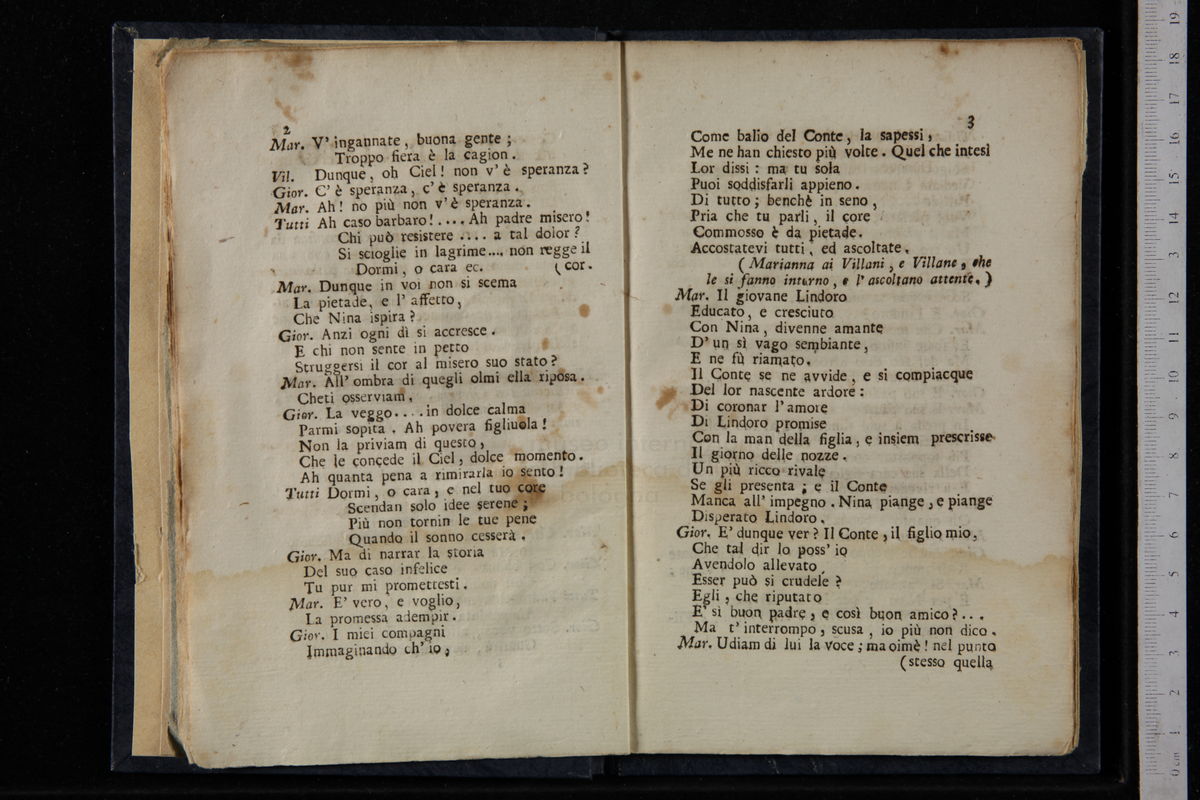 2
Mar. V' ingannate, buona gente;
Troppo fiera è la cagion.
Vil. Dunque, oh Ciel! non v' è speranza?
Gior. C' è speranza, c' è speranza.
Mar. Ah! no più non v' è speranza.
Tutti Ah caso barbaro!.... Ah padre misero!
Chi può resistere .... a tal dolor?
Si scioglie in lagrime.... non regge il
Dormi, o cara ec. (cor.
Mar. Dunque in voi non si scema
La pietade, e l' affetto,
Che Nina ispira?
Gior. Anzi ogni dì si accresce.
E chi non sente in petto
Struggersi il cor al misero suo stato?
Mar. All' ombra di quegli olmi ella riposa.
Cheti osserviam.
Gior. La veggo.... in dolce calma
Parmi sopita. Ah povera figliuola!
Non la priviam di questo,
Che le concede il Ciel, dolce momento.
Ah quanta pena a rimirarla io sento!
Tutti Dormi, o cara, e nel tuo core
Scendan solo idee serene;
Più non tornin le tue pene
Quando il sonno cesserà.
Gior. Ma di narrar la storia
Del suo caso infelice
Tu pur mi promettesti.
Mar. E' vero, e voglio,
La promessa adempir.
Gior. I miei compagni
Immaginando ch' io,
3
Come balio del Conte, la sapessi,
Me ne han chiesto più volte. Quel che intesi
Lor dissi: ma tu sola
Puoi soddisfarli appieno.
Di tutto; benchè in seno,
Pria che tu parli, il core
Commosso è da pietade.
Accostatevi tutti, ed ascoltate.
(Marianna ai Villani, e Villane, che
le si fanno intorno, e l' ascoltano attente.)
Mar. Il giovane Lindoro
Educato, e cresciuto
Con Nina, divenne amante
D' un sì vago sembiante,
E ne fù riamato.
Il Conte se ne avvide, e si compiacque
Del lor nascente ardore:
Di coronar l' amore
Di Lindoro promise
Con la man della figlia, e insiem prescrisse
Il giorno delle nozze.
Un più ricco rivale
Se gli presenta; e il Conte
Manca all' impegno. Nina piange, e piange
Disperato Lindoro.
Gior. E' dunque ver? Il Conte, il figlio mio,
Che tal dir lo poss' io
Avendolo allevato,
Esser può si crudele?
Egli, che riputato
E' sì buon padre, e così buon amico?...
Ma t' interrompo, scusa, io più non dico.
Mar. Udiam di lui la voce; ma oimè! nel punto
(stesso quella